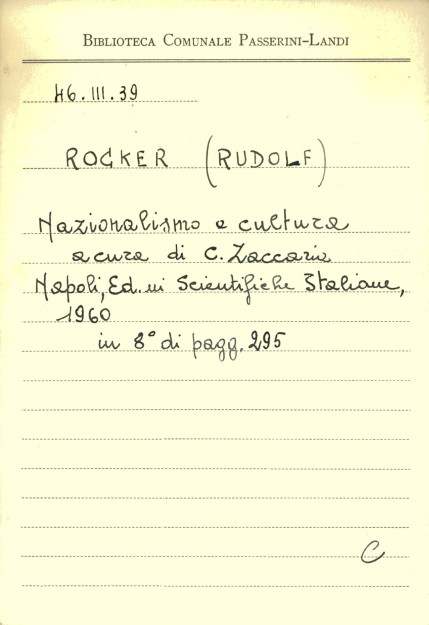 BIBLIOTECA COMUNALE PASSERINI-LANDI
46.III.39
ROCKER (RUDOLF)
Nazionalismo e cultura
a cura di C. Zaccaria
Napoli, Ed.ni Scientifiche Italiane,
1960
in 8° di pagg. 295
C